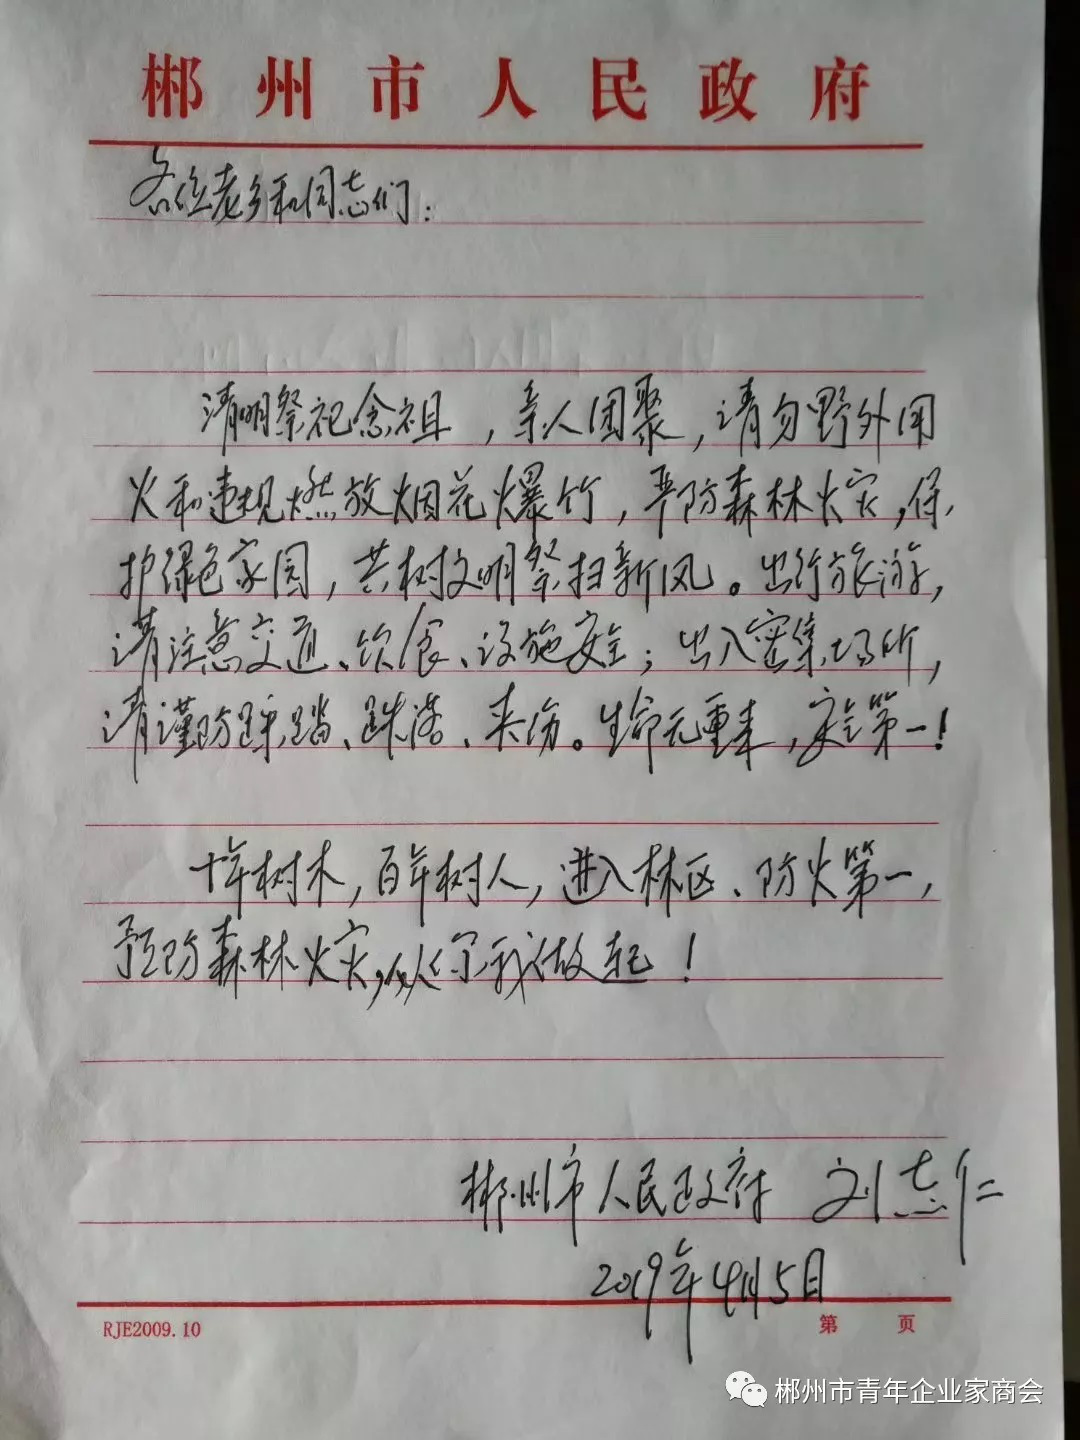 郴州市人民政府
各位老乡和同志们：
清明祭祀念祖，亲人团聚，请勿野外用
火和违规燃放烟花爆竹，严防森林火灾，保
护绿色家园，共树文明祭扫新风。出行旅游，
请注意交通、饮食、设施安全；出入密集场所，
请谨防踩踏、跌落、夹伤。生命无重来，安全第一！
十年树木，百年树人，进入林区、防火第一，
预防森林火灾，从你我做起！
郴州市人民政府 刘志仁
2019年4月5日
RJE2009.10 第 页
郴州市青年企业家商会